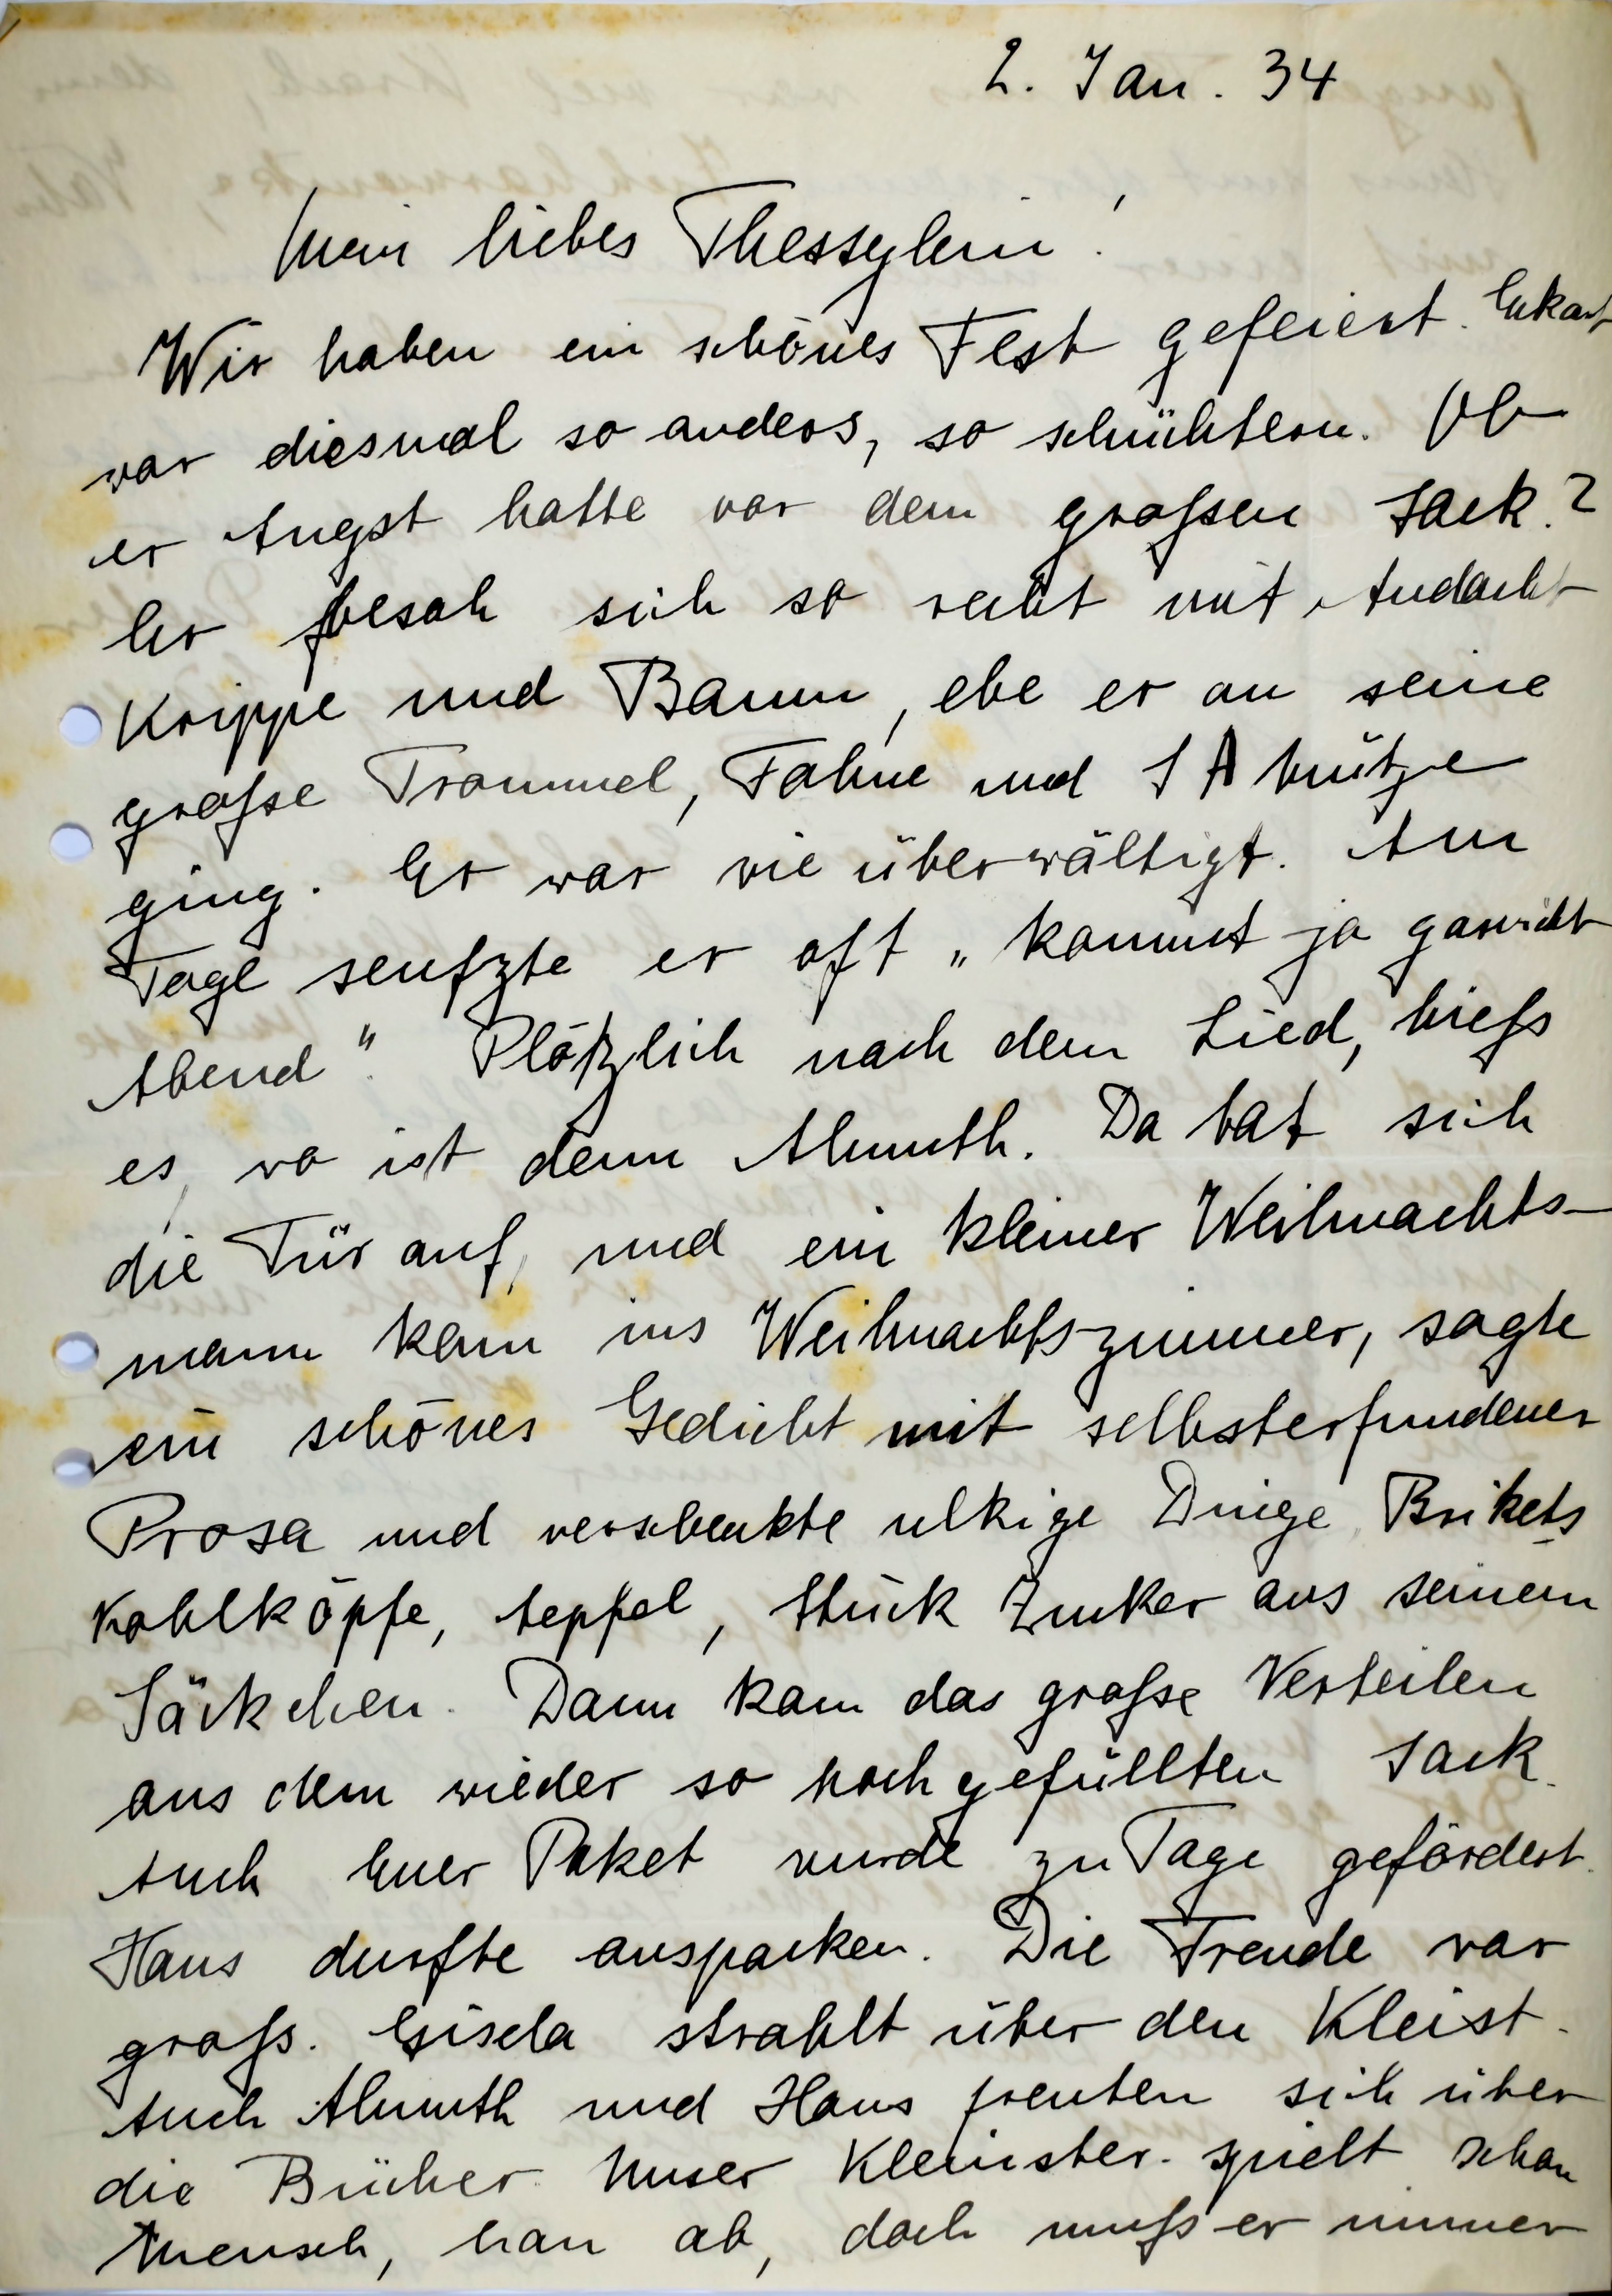 2. Jan. 34
Mein liebes Thessylein!
Wir haben ein schönes Fest gefeiert. Ekart
war diesmal so anders, so schüchtern. Ob
er Angst hatte vor dem großen Sack?
Er besah sich so recht mit Andacht
Krippe und Baum, ehe er an seine
große Trommel, Fahne und S A Mütze
ging. Er war wie überwältigt. Am
Tage seufzte er oft „kommt ja garnicht
Abend". Plötzlich nach dem Lied, hieß
es, wo ist denn Almuth. Da tat sich
die Tür auf, und ein kleiner Weihnachts-
mann kam ins Weihnachtszimmer, sagte
ein schönes Gedicht mit selbsterfundener
Prosa und verschenkte ulkige Dinge, Brikets
Kohlköpfe, Aepfel, Stück Zucker aus seinem
Säckchen. Dann kam das große Verteilen
aus dem wieder so hoch gefüllten Sack.
Auch Euer Paket wurde zu Tage gefördert.
Hans durfte auspacken. Die Freude war
groß. Gisela strahlt über den Kleist.
Auch Almuth und Hans freuten sich über
die Bücher. Unser Kleinster spielt schon
Mensch, hau ab, doch muß er immer